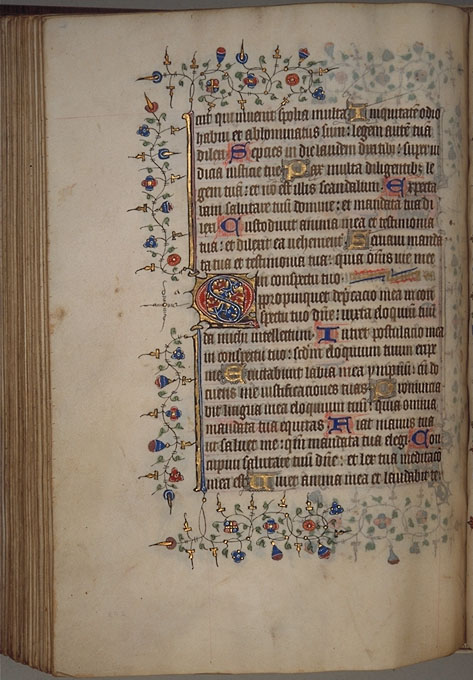 cut qui inuenit spolia multa Iniquitatē odio
habui et abhominatus sum: legem autē tuā
dilexi Sepcies in die laudem dixi tibi: super iu
dicia iusticie tue Pax multa diligentibz le
gem tuā: et nō est illis scandalum Expecta
bam salutare tuum domine: et mandata tua di
lexi Custodiuit anima mea et testimonia
tua: et dilexit ea uehement Seruaui manda
ta tua et testimonia tua: quia om̄es vie mee
in conspectu tuo:
propinquet dep̄catio mea in con
spectu tuo dn̄e: iuxta eloquium tuum
da michi intellectum Intret postulatio mea
in conspectu tuo: scdm̄ eloquium tuum eripe
Eructabunt labia mea ympnū: cū do
cueris me iustificationes tuas Pronuncia
bit lingua mea eloquium tuū: quia omnia
mandata tua equitas Fiat manus tua
ut saluet me: qm̄ mandata tua elegi Con
cupiui salutare tuū dn̄e: et lex tua meditacō
mea est Uiuet anima mea et laudabit te